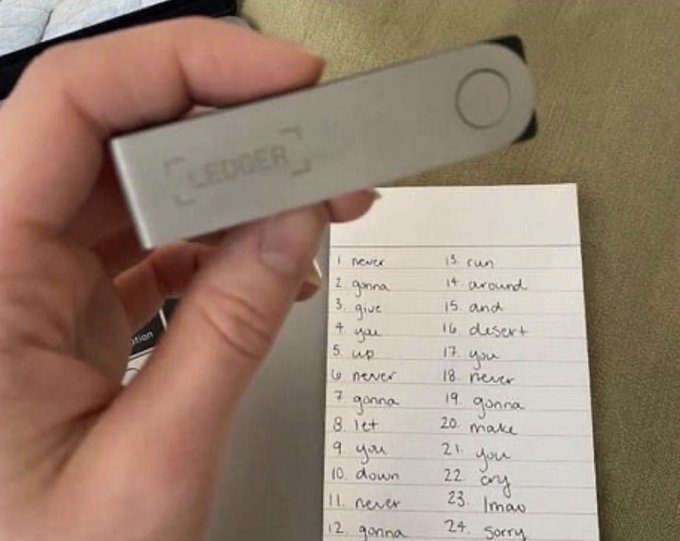 LEDGER
1 never
2. gonna
3. give
4. you
5. up
6 never
7 gonna
8. let
9. you
10. down
11. never
12. gonna
13. run
14. around
15. and
16 desert
17. you
18 never
19. gonna
20. make
21. you
22. cry
23. lmao
24. sorry